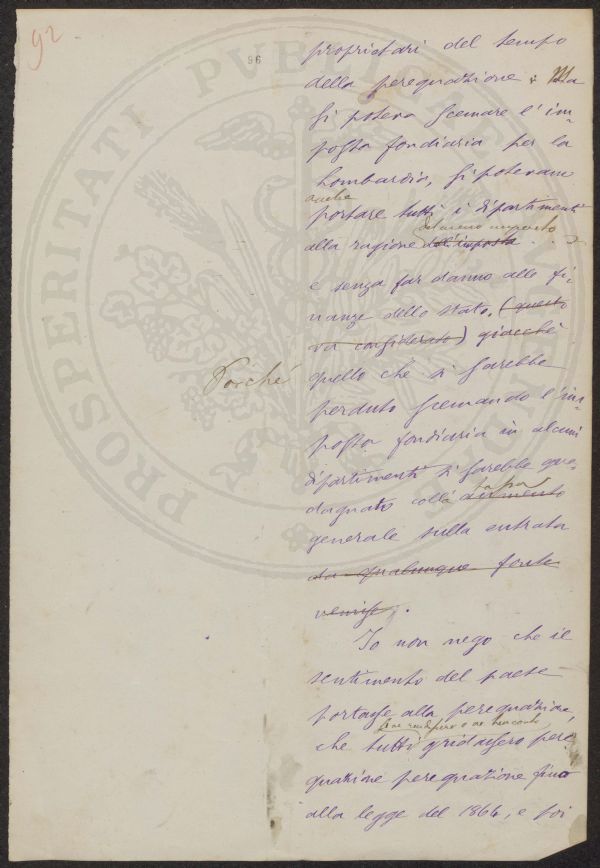 92
96
PROSPERITATI PVBLICAE
proprietari del tempo
della perequazione; Ma
si poteva scemare l'im-
posta fondiaria per la
Lombardia, si potevano
anche
portare tutti i dipartimenti
del meno imposto
alla ragione dell'imposta
e senza far danno alle fi-
nanze dello stato. (questo
va considerato) giacchè
Poiché
quello che si sarebbe
perduto scemando l'im-
posta fondiaria in alcuni
dipartimenti si sarebbe gua-
tassa
dagnato coll'aumento
generale sulla entrata
da qualunque fonte
venisse.
Io non nego che il
sentimento del paese
portasse alla perequazione,
che tutti gridassero pere
quazione perequazione fino
alla legge del 1864, e poi